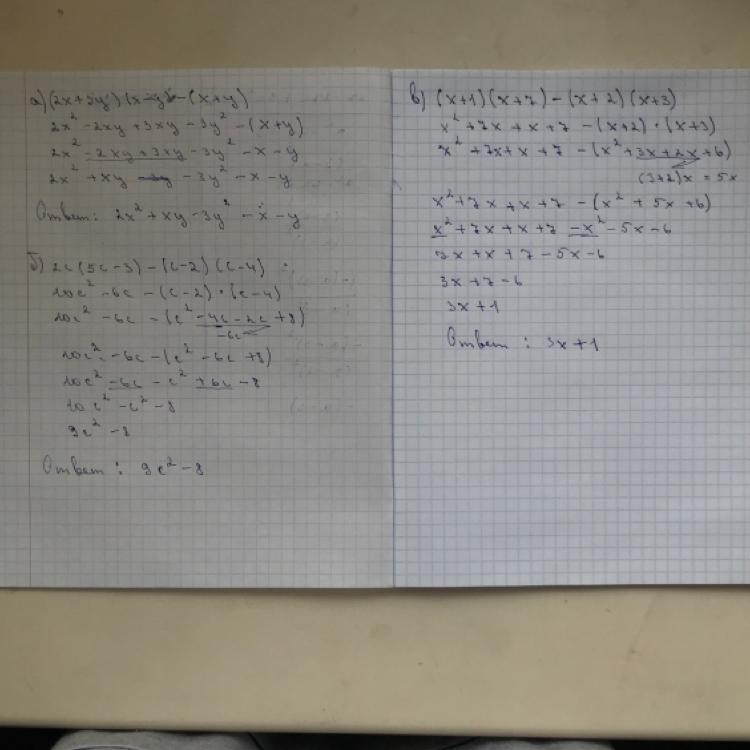 а) (2x+3y)(x-y)-(x+y)
2x²-2xy+3xy-3y²-(x+y)
2x²-2xy+3xy-3y²-x-y
2x²+xy-3y²-x-y
Ответ: 2x²+xy-3y²-x-y
б) 2c(5c-3)-(c-2)(c-4)
10c²-6c-(c-2)·(c-4)
10c²-6c-(c²-4c-2c+8)
-6c
10c²-6c-(c²-6c+8)
10c²-6c-c²+6c-8
10c²-c²-8
9c²-8
Ответ: 9c²-8
в) (x+1)(x+7)-(x+2)(x+3)
x²+7x+x+7-(x+2)·(x+3)
x²+7x+x+7-(x²+3x+2x+6)
(3+2)x=5x
x²+7x+x+7-(x²+5x+6)
x²+7x+x+7-x²-5x-6
7x+x+7-5x-6
3x+7-6
3x+1
Ответ: 3x+1